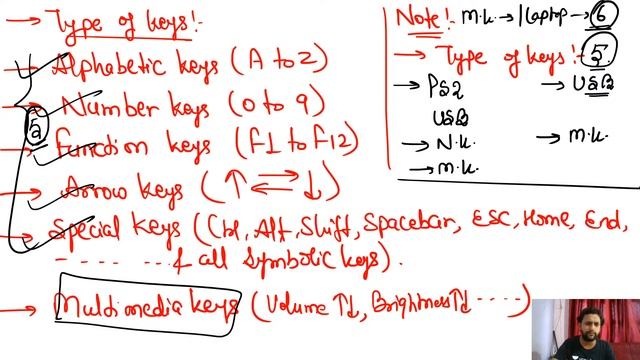 → Type of keys:-
→ Alphabetic keys (A to Z)
→ Number keys (0 to 9)
5
→ Function keys (F1 to F12)
→ Arrow keys (↑ ⇄ ↓)
→ Special keys (Ctrl, Alt, Shift, Spacebar, ESC, Home, End,
- - - - - - - & all Symbolic keys).
→ Multimedia keys (Volume ↑↓, Brightness ↑↓ - - - -)
Note:- M.K. → /Laptop → 6
→ Type of keys:- 5
→ PS2 → USB
USB
→ N.K. → M.K.
→ M.K.